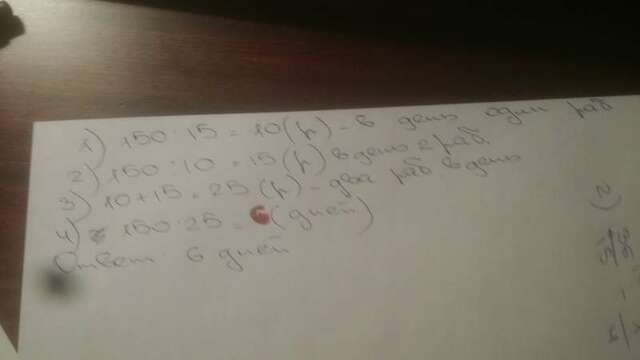 1) 150:15=10(р)-в день один раб
2) 150:10=15(р) в день 2 раб
3) 10+15=25(р)-два раб в день
4) 150:25=6(дней)
Ответ: 6 дней
2)